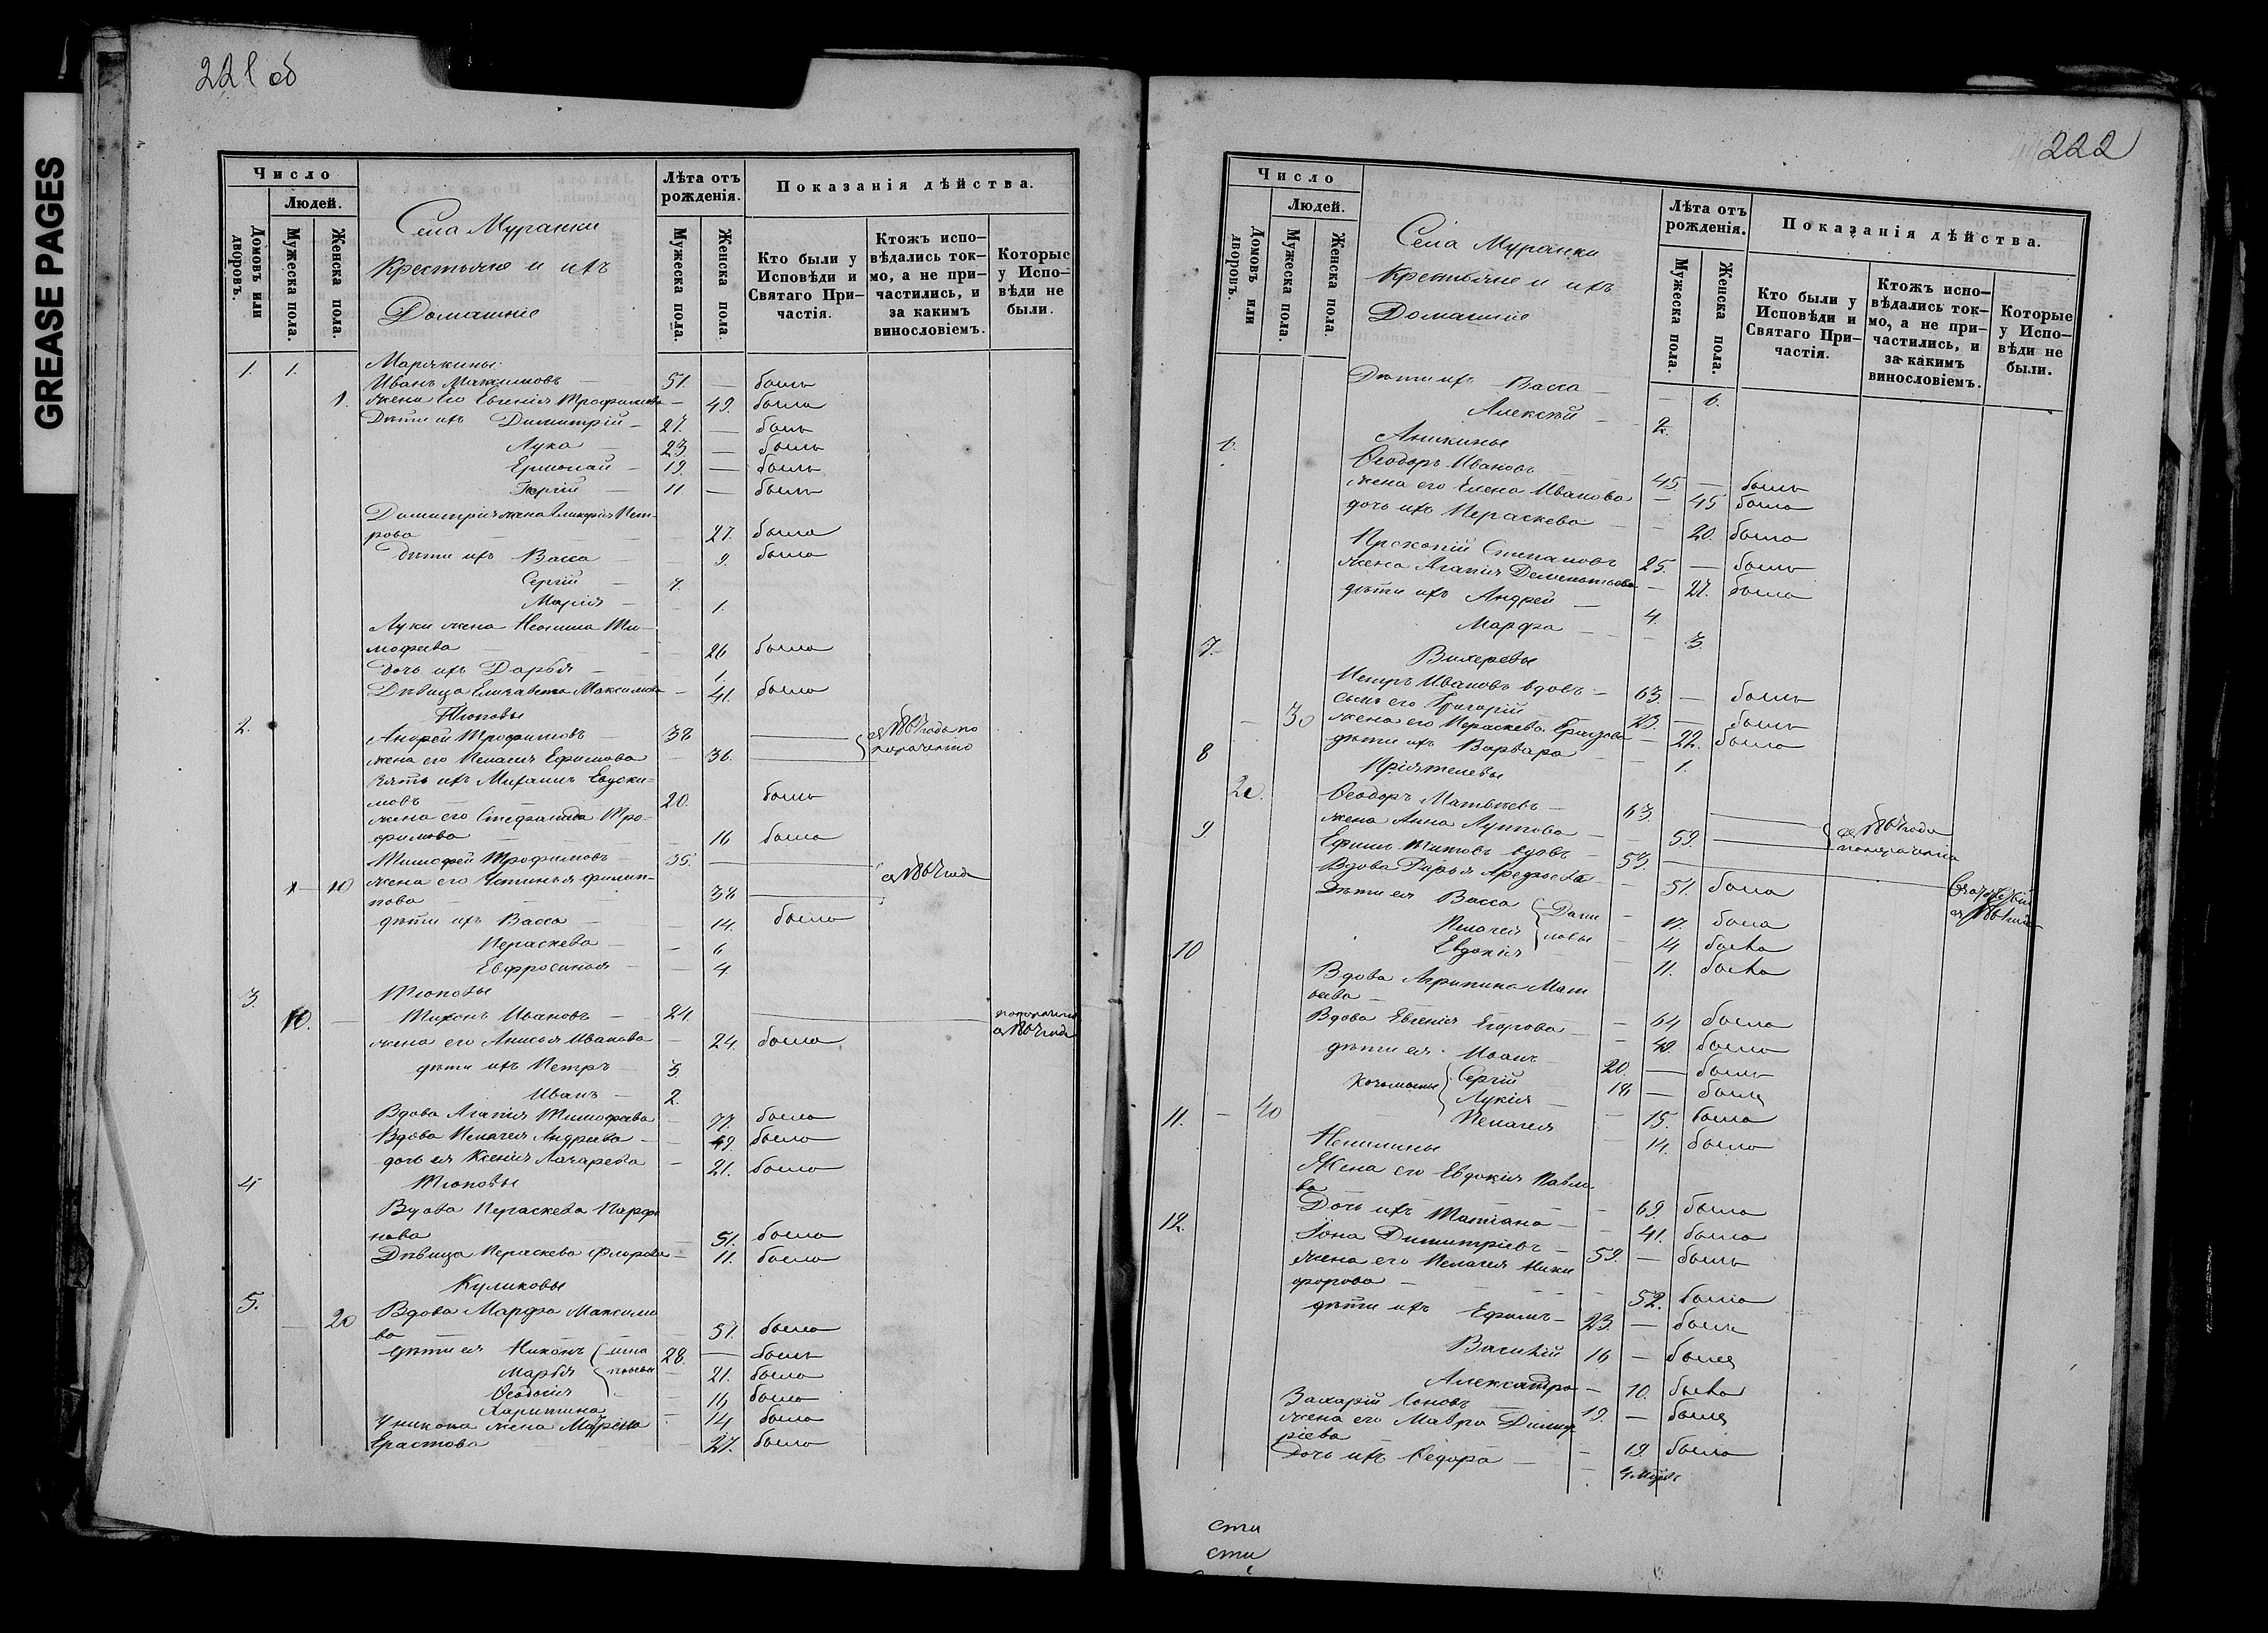 GREASE PAGES
221 об
Число
Людей.
Домовъ или дворовъ.
Мужеска пола.
Женска пола.
Села Муранки
Крестьяне и ихъ
Домашніе
Лѣта отъ рожденія.
Мужеска пола.
Женска пола.
Показанія дѣйства.
Кто были у Исповѣди и Святаго При-
частія.
Ктожъ испо-
вѣдались ток-
мо, а не при-
частились, и
за какимъ
винословіемъ.
Которые
у Испо-
вѣди не
были.
1. 1. Марякины
Иванъ Максимовъ — 51. — былъ
1. жена его Евгенія Трофимова — 49. была
Дѣти ихъ Димитрій — 27. — былъ
Лука 23 — былъ
Ермолай — 19. — былъ
Георгій — 11 — былъ
Димитрія жена Гликерія Пет-
рова 27. была
Дѣти ихъ Васса — 9. была
Сергій — 7.
Марія — 1.
Луки жена Неонила Ти-
мофеева 26 была
дочь ихъ Дарья — 1.
Дѣвица Елизавета Максимова — 41. была
2. Тюповы
Андрей Трофимовъ — 38 — съ 1864 года по
жена его Пелагія Ефимова — 36.
Зять ихъ Михаилъ Евдоки-
мовъ 20. былъ
жена его Стефанида Тро-
фимова 16 была
Тимофей Трофимовъ 35. — съ 1864 года
10 жена его Устинья Филип-
пова 38
дѣти ихъ Васса — 14. была
Пераскева — 6
Евфросинья — 4
3. Тюповы
10. Тихонъ Ивановъ — 24. съ 1864 года
жена его Анисья Иванова 24. была
дѣти ихъ Петръ — 3
Иванъ — 2.
Вдова Агапія Тимофеева 77. была
Вдова Пелагея Андреева — 49. была
дочь ея Ксенія Лазарева — 21. была
4 Тюповы
Вдова Пераскева Парфе
нова 51. была
Дѣвица Пераскева Флорова — 11. была
Куликовы
5. 20 Вдова Марфа Максимо
ва 51. была
дѣти ея Никонъ 28. — былъ
Марья 21. была
Ѳеодосія 16 была
Харитина 14 была
У Никона жена Матрена
Ерастова 27. была
222
Число
Людей.
Домовъ или дворовъ.
Мужеска пола.
Женска пола.
Села Муранки
Крестьяне и ихъ
Домашніе
Лѣта отъ рожденія.
Мужеска пола.
Женска пола.
Показанія дѣйства.
Кто были у
Исповѣди и
Святаго При-
частія.
Ктожъ испо-
вѣдались ток-
мо, а не при-
частились, и
за какимъ
винословіемъ.
Которые
у Испо-
вѣди не
были.
Дѣти ихъ Васса — 6.
Алексѣй — 2.
6. Аникины
Ѳеодоръ Ивановъ 45. — былъ
жена его Елена Иванова — 45 была
дочь ихъ Пераскева 20. была
Прокопій Степановъ 25. — былъ
жена Агапія Дементьева — 27. была
дѣти ихъ Андрей 4.
Марфа 3.
7. Вихеревы
Петръ Ивановъ вдовъ — 63. — былъ
сынъ его Григорій 23. — былъ
30 жена его Пераскева 22. была
дѣти ихъ Варвара 1.
8 Пріятелевы
20. Ѳеодоръ Матвѣевъ — 63. съ 1864 года
жена Анна Луппова — 59.
9 Ефимъ Титовъ вдовъ — 53. съ 1864 года
Вдова Дарья 51. была
Дѣти ея Васса 17. была
Пелагея 14 была
Евдокія 11. была
10 Вдова Агрипина Мат
веева — 64 была
Вдова Евгенія Егорова — 49. была
дѣти ея Иванъ 20. — былъ
Сергій 18 — былъ
Лукія 15. была
Пелагея 14. была
11. 40 Ненилины
Жена его Евдокія Павло
ва 69. была
Дочь ихъ Татіана — 41. была
12. Іона Димитріевъ — 59. — былъ
жена его Пелагея Ники
форова — 52. была
дѣти ихъ Ефимъ — 23. — былъ
Василій 16 — былъ
Александра — 10. была
Захарій Іоновъ 19. — былъ
жена его Мавра Димит
ріева 19. была
Дочь ихъ Ѳедора —
сти
сти